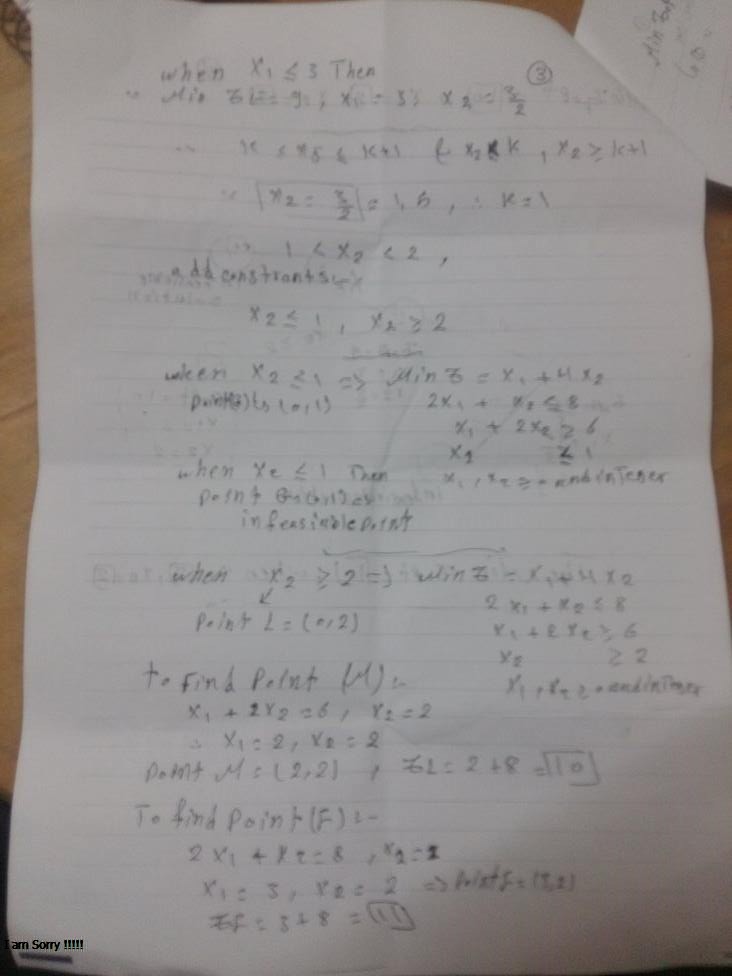 ③
when x₁ ≤ 3 Then
∴ Min ZL = 9, x₁ = 3, x₂ = 3/2
∴ K ≤ x₂ ≤ K+1 & x₂ ≤ K, x₂ ≥ K+1
∵ x₂ = 3/2 = 1,5, ∴ K=1
1 < x₂ < 2,
add constrants:-
x₂ ≤ 1, x₂ ≥ 2
when x₂ ≤ 1 => Min Z = x₁ + 4x₂
2x₁ + x₂ ≤ 8
x₁ + 2x₂ ≥ 6
x₂ ≤ 1
x₁, x₂ ≥ 0 and inTeger
when x₂ ≤ 1 Then
point
infeasible point
when x₂ ≥ 2 => Min Z = x₁ + 4x₂
2x₁ + x₂ ≤ 8
Point L = (0,2)
x₁ + 2x₂ ≥ 6
x₂ ≥ 2
x₁, x₂ ≥ 0 and inTeger
to Find Point (M):-
x₁ + 2x₂ = 6, x₂ = 2
∴ x₁ = 2, x₂ = 2
point M = (2,2), ZL = 2+8 = 10
To find Point (F):-
2x₁ + x₂ = 8, x₂ = 2
x₁ = 3, x₂ = 2 => Point F = (3,2)
ZF = 3+8 = 11
I am Sorry !!!!!